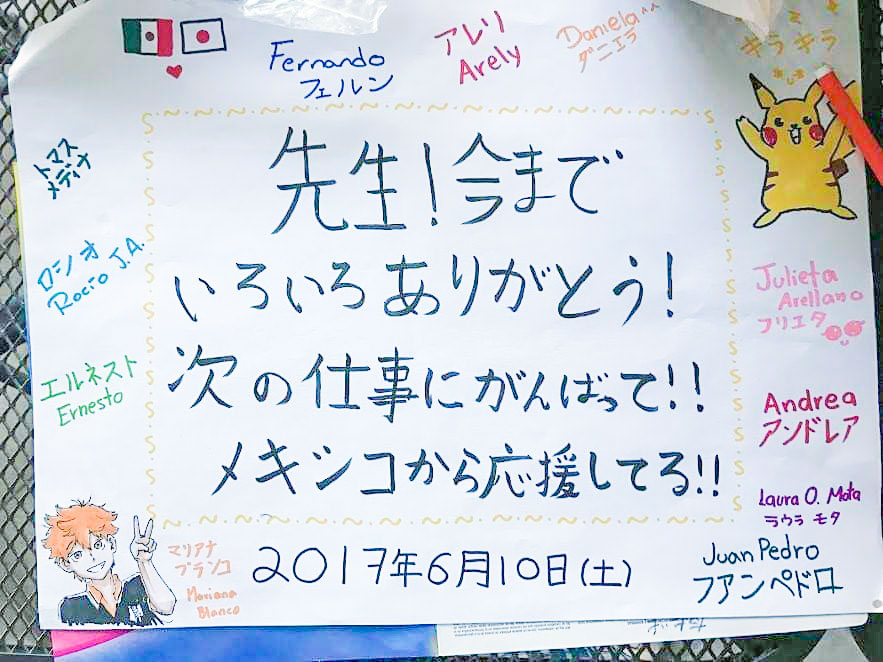 Fernando
フェルン
アレリ
Arely
Daniela^^
ダニエラ
キラキラ
トマス
メディナ
ロシオ
Rocío J.A.
エルネスト
Ernesto
先生!今まで
いろいろありがとう!
次の仕事にがんばって!!
メキシコから応援してる!!
2017年6月10日(土)
Julieta
Arellano
フリエタ
Andrea
アンドレア
Laura O. Mota
ラウラ モタ
Juan Pedro
フアンペドロ
マリアナ
ブランコ
Mariana
Blanco